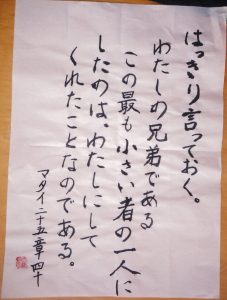 はっきり言っておく。
わたしの兄弟である
この最も小さい者の一人に
したのは、わたしにして
くれたことなのである。
マタイ二十五章四十